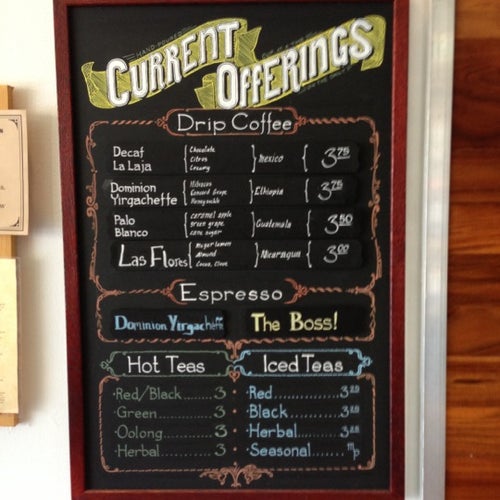 HAND-POURED
CURRENT OFFERINGS
Drip Coffee
Decaf La Laja { Chocolate Citrus Creamy } Mexico { 3.75
Dominion Yirgacheffe { Hibiscus Concord Grape Honeysuckle } Ethiopia { 3.75
Palo Blanco { caramel apple green grape cane sugar } Guatemala { 3.50
Las Flores { Meyer lemon Almond Cocoa, Clove } Nicaragua { 3.00
Espresso
Dominion Yirgacheffe The Boss!
Hot Teas
·Red/Black.......3
·Green............3
·Oolong...........3
·Herbal...........3
Iced Teas
Red............3.25
Black..........3.25
Herbal........3.25
Seasonal...... mp